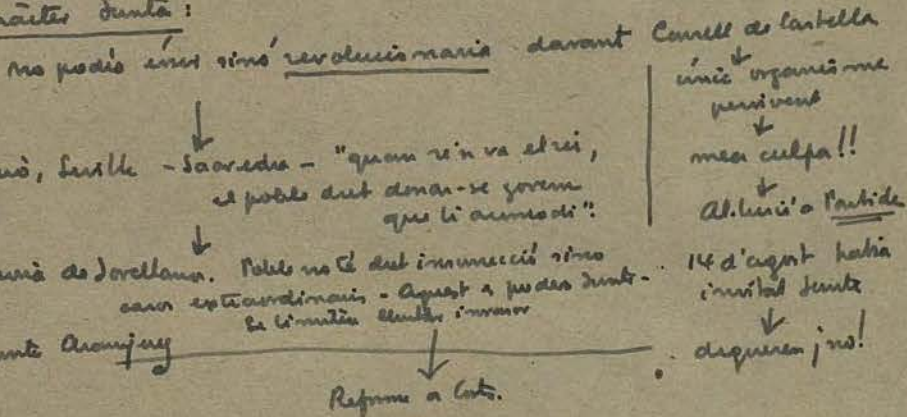 caràcter Junta:
no podia ésser sinó revolucionaria davant Consell de Castella
↓
únic organisme
pervivent
↓
mea culpa!!
↓
Al·lusió a l'antida
14 d'agost havia
invitat Junta
↓
digueren ¡no!
↓
Sevilla - Saavedra - "quan se'n va el rei,
el poble dret donar-se govern
que li acomodi".
↓
de Jovellanos. Poble no té dret insurrecció sino
casos extraordinaris - Aquest a poders Junta -
Se limitèn lluitar invasor
Aranjuez
↓
Reforma a Corts.